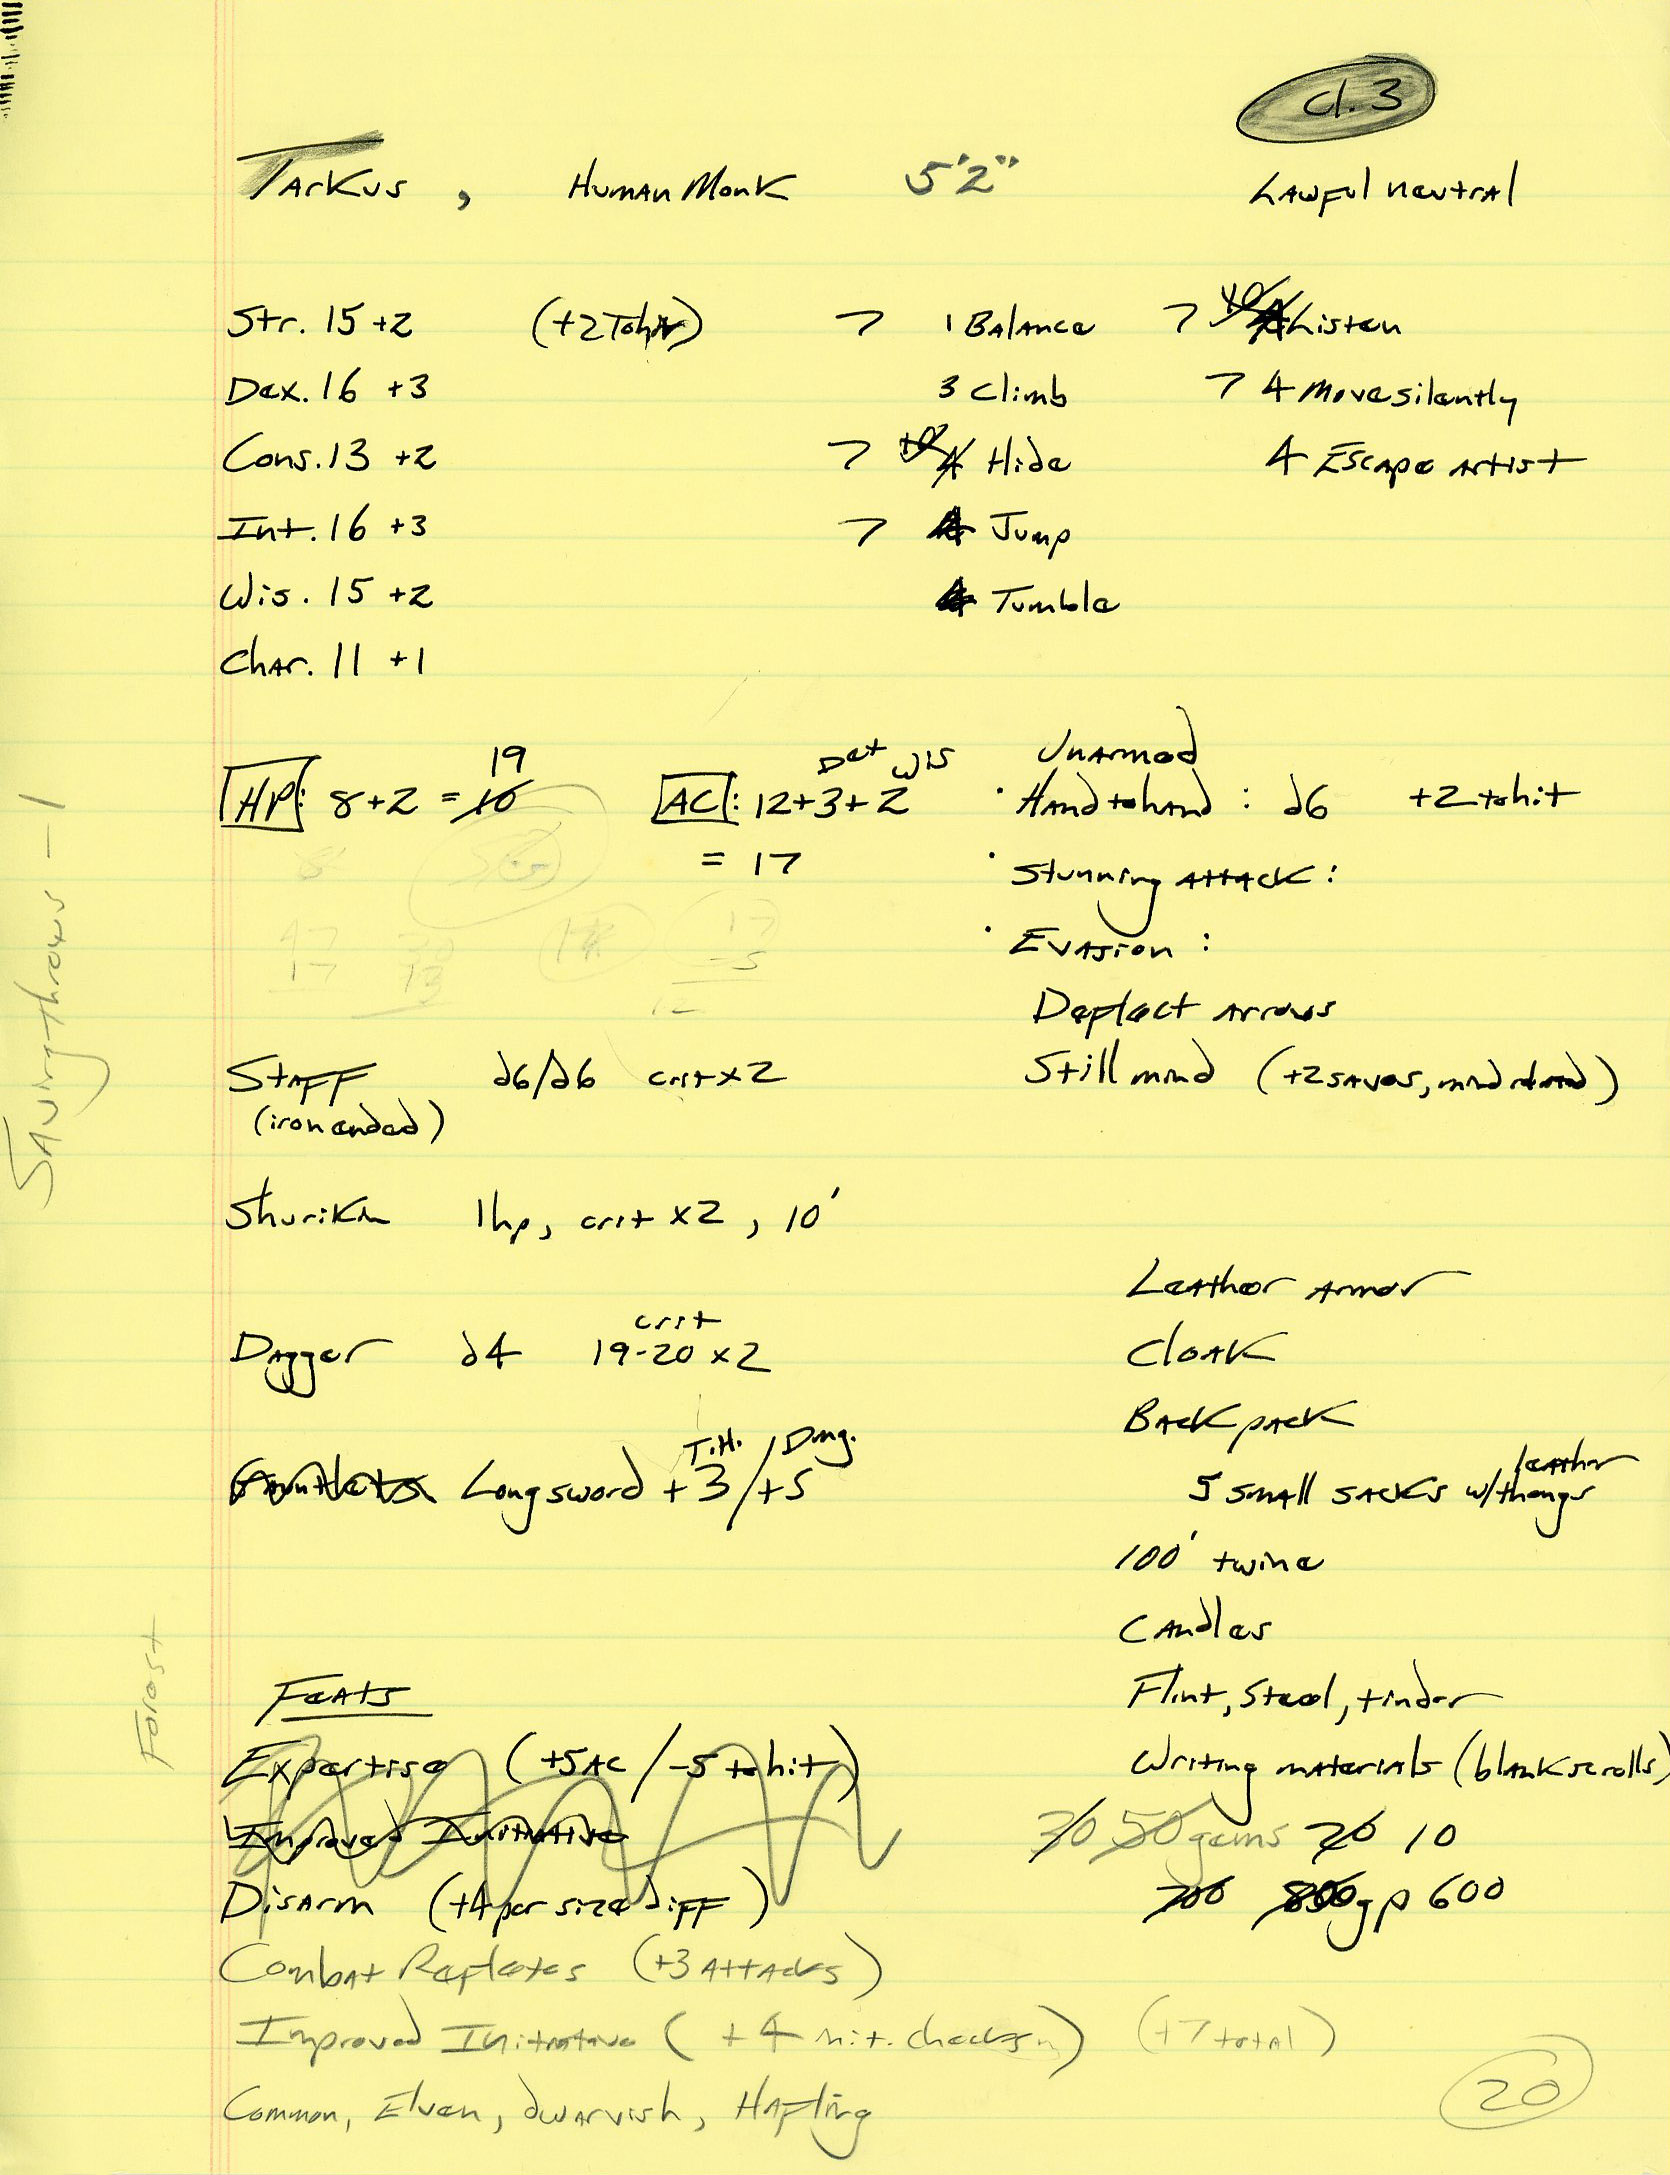 cl. 3
Tarkus, Human Monk 5'2" Lawful neutral
Str. 15 +2 (+2 Tohit) 7 1 Balance 7 Listen
Dex. 16 +3 3 Climb 7 4 Move silently
Cons. 13 +2 7 4 Hide 4 Escape artist
Int. 16 +3 7 4 Jump
Wis. 15 +2 4 Tumble
Char. 11 +1
19 Dex Wis Unarmed
HP: 8+2 = 10 AC: 12+3+2 • Hand to hand: d6 +2 to hit
= 17 • Stunning attack:
• Evasion:
Deflect arrows
Staff d6/d6 crit x2 Still mind (+2 saves, mind related)
(iron ended)
Shuriken 1hp, crit x2, 10'
Leather armor
crit
Dagger d4 19-20 x2 Cloak
Backpack
T.H. / Dmg.
Gauntlets Longsword +3/+5 5 small sacks w/ leather thongs
100' twine
Candles
Feats Flint, Steel, tinder
Expertise (+5 AC / -5 to hit) Writing materials (blank scrolls)
Improved Initiative 30 50 gems 20 10
Disarm (+4 per size diff) 700 800 gp 600
Combat Reflexes (+3 attacks)
Improved Initiative (+4 init. checks) (+7 total)
Common, Elven, dwarvish, Hafling
20
Saving throws - 1
Forest